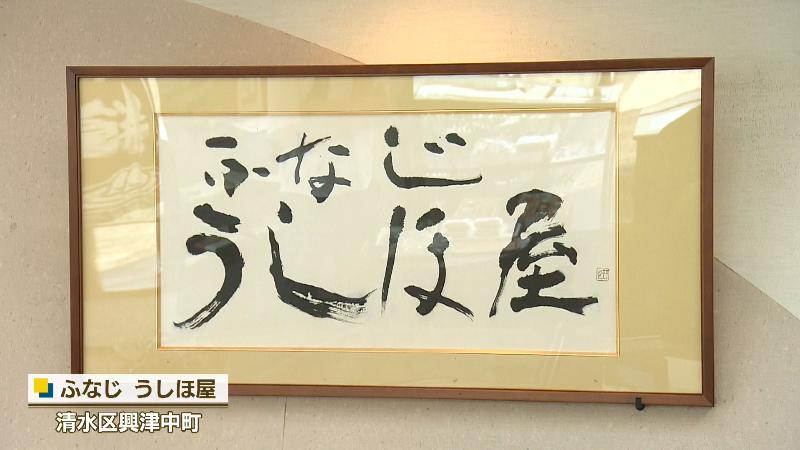 ふなじ
うしほ屋
ふなじ うしほ屋
清水区興津中町